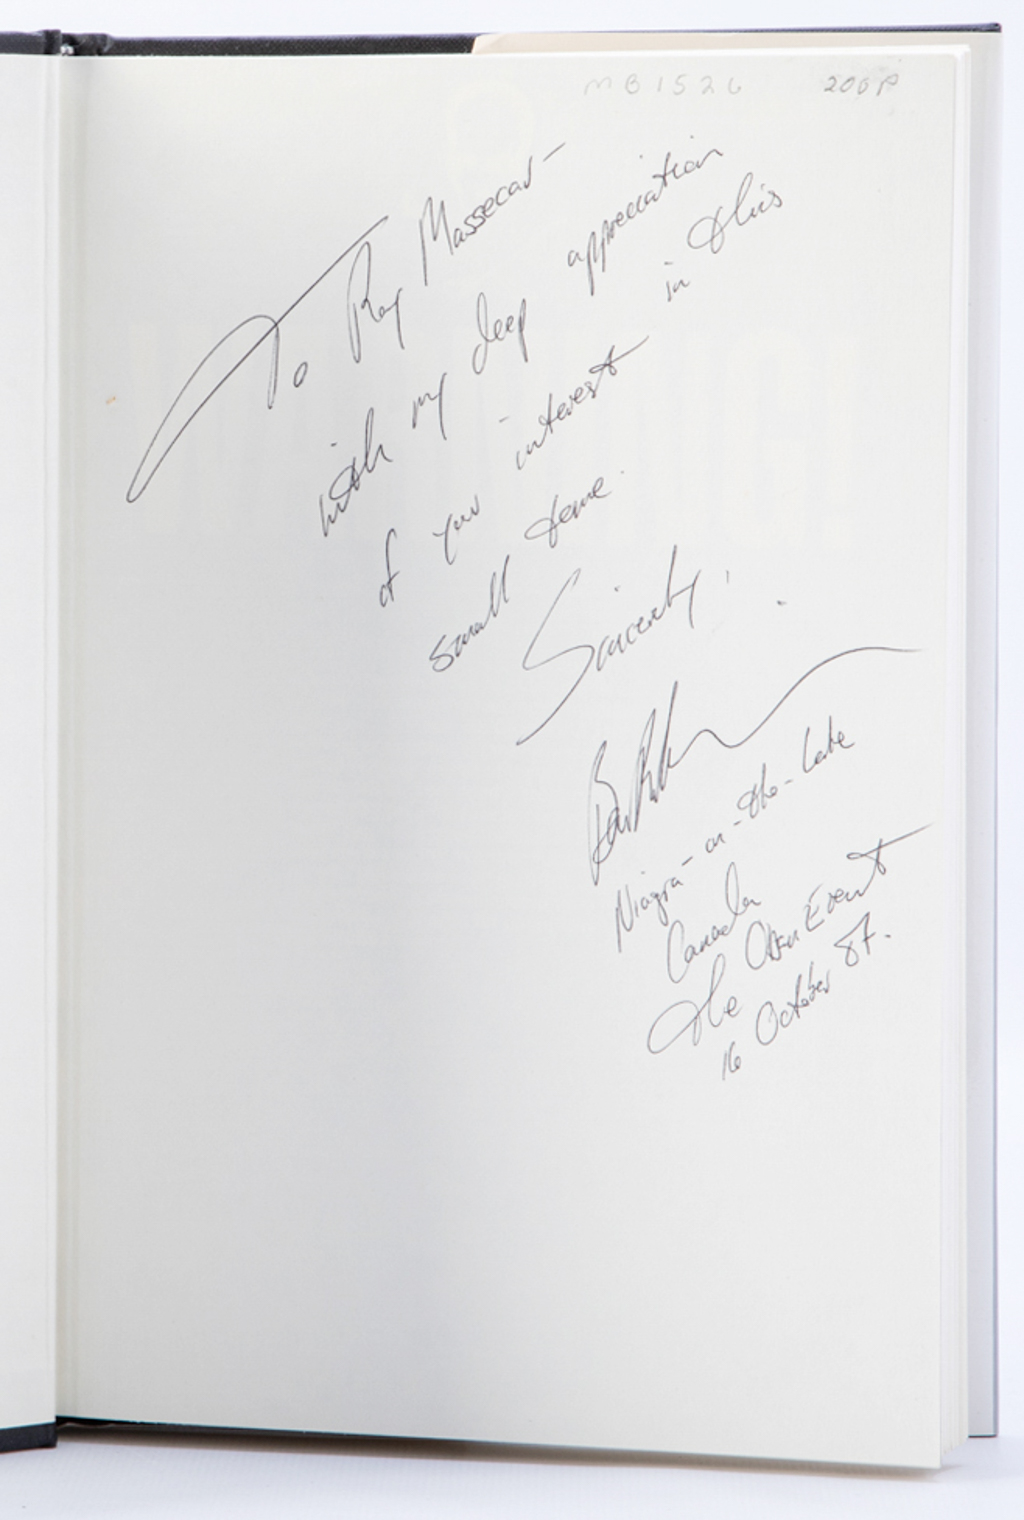 MB1526 200P
To Ray Massecar -
with my deep appreciation
of your interest in this
small tome.
Sincerely,
Niagra-on-the-Lake
Canada
The Event
16 October 87.